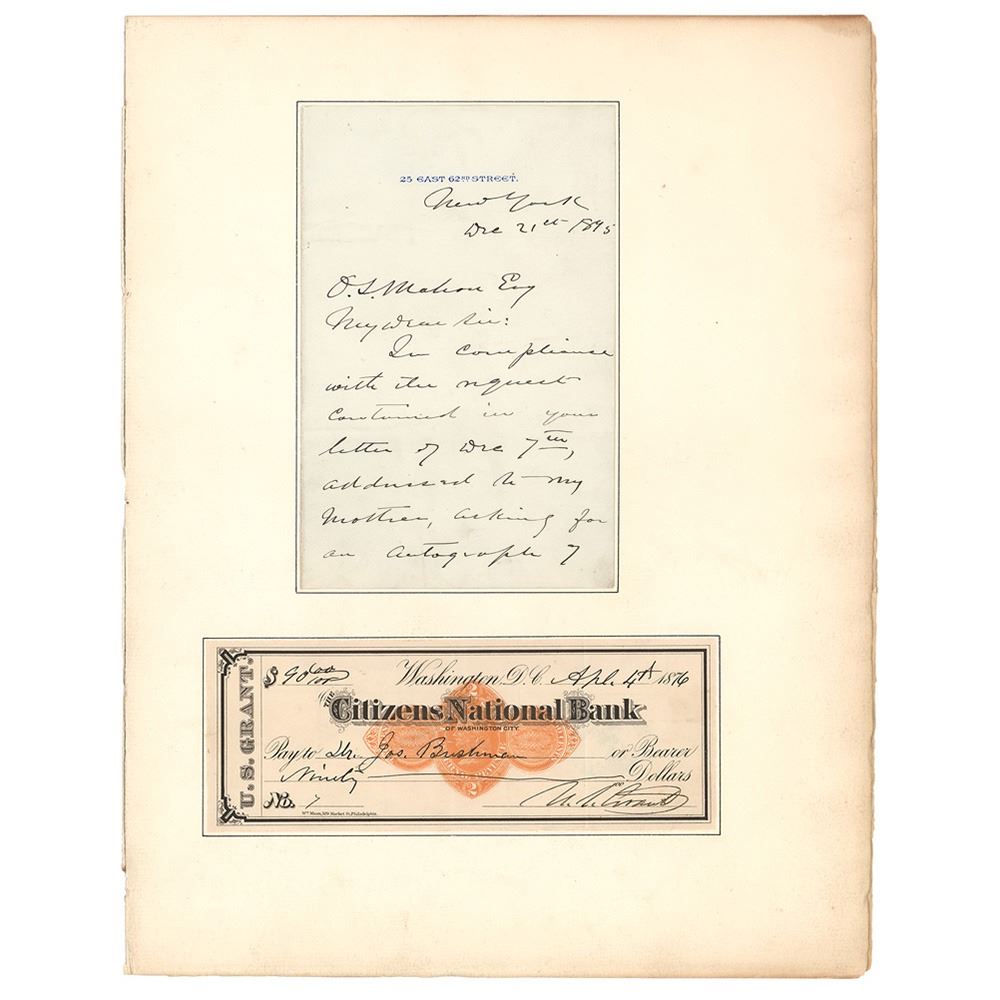 25 EAST 62ND STREET.
New York
Dec 21st 1895
O. S. Mahon Esq
My dear sir:
In compliance
with the request
contained in your
letter of Dec 7th,
addressed to my
Mother, asking for
an autograph of
U.S. GRANT.
$90 00/100 Washington, D.C. Apl. 4th 1876
THE Citizens National Bank
OF WASHINGTON CITY
Pay to Dr. Jos. Bushman or Bearer
Ninety Dollars
No. 7 U. S. Grant
Wm Mann, 529 Market St. Philadelphia.